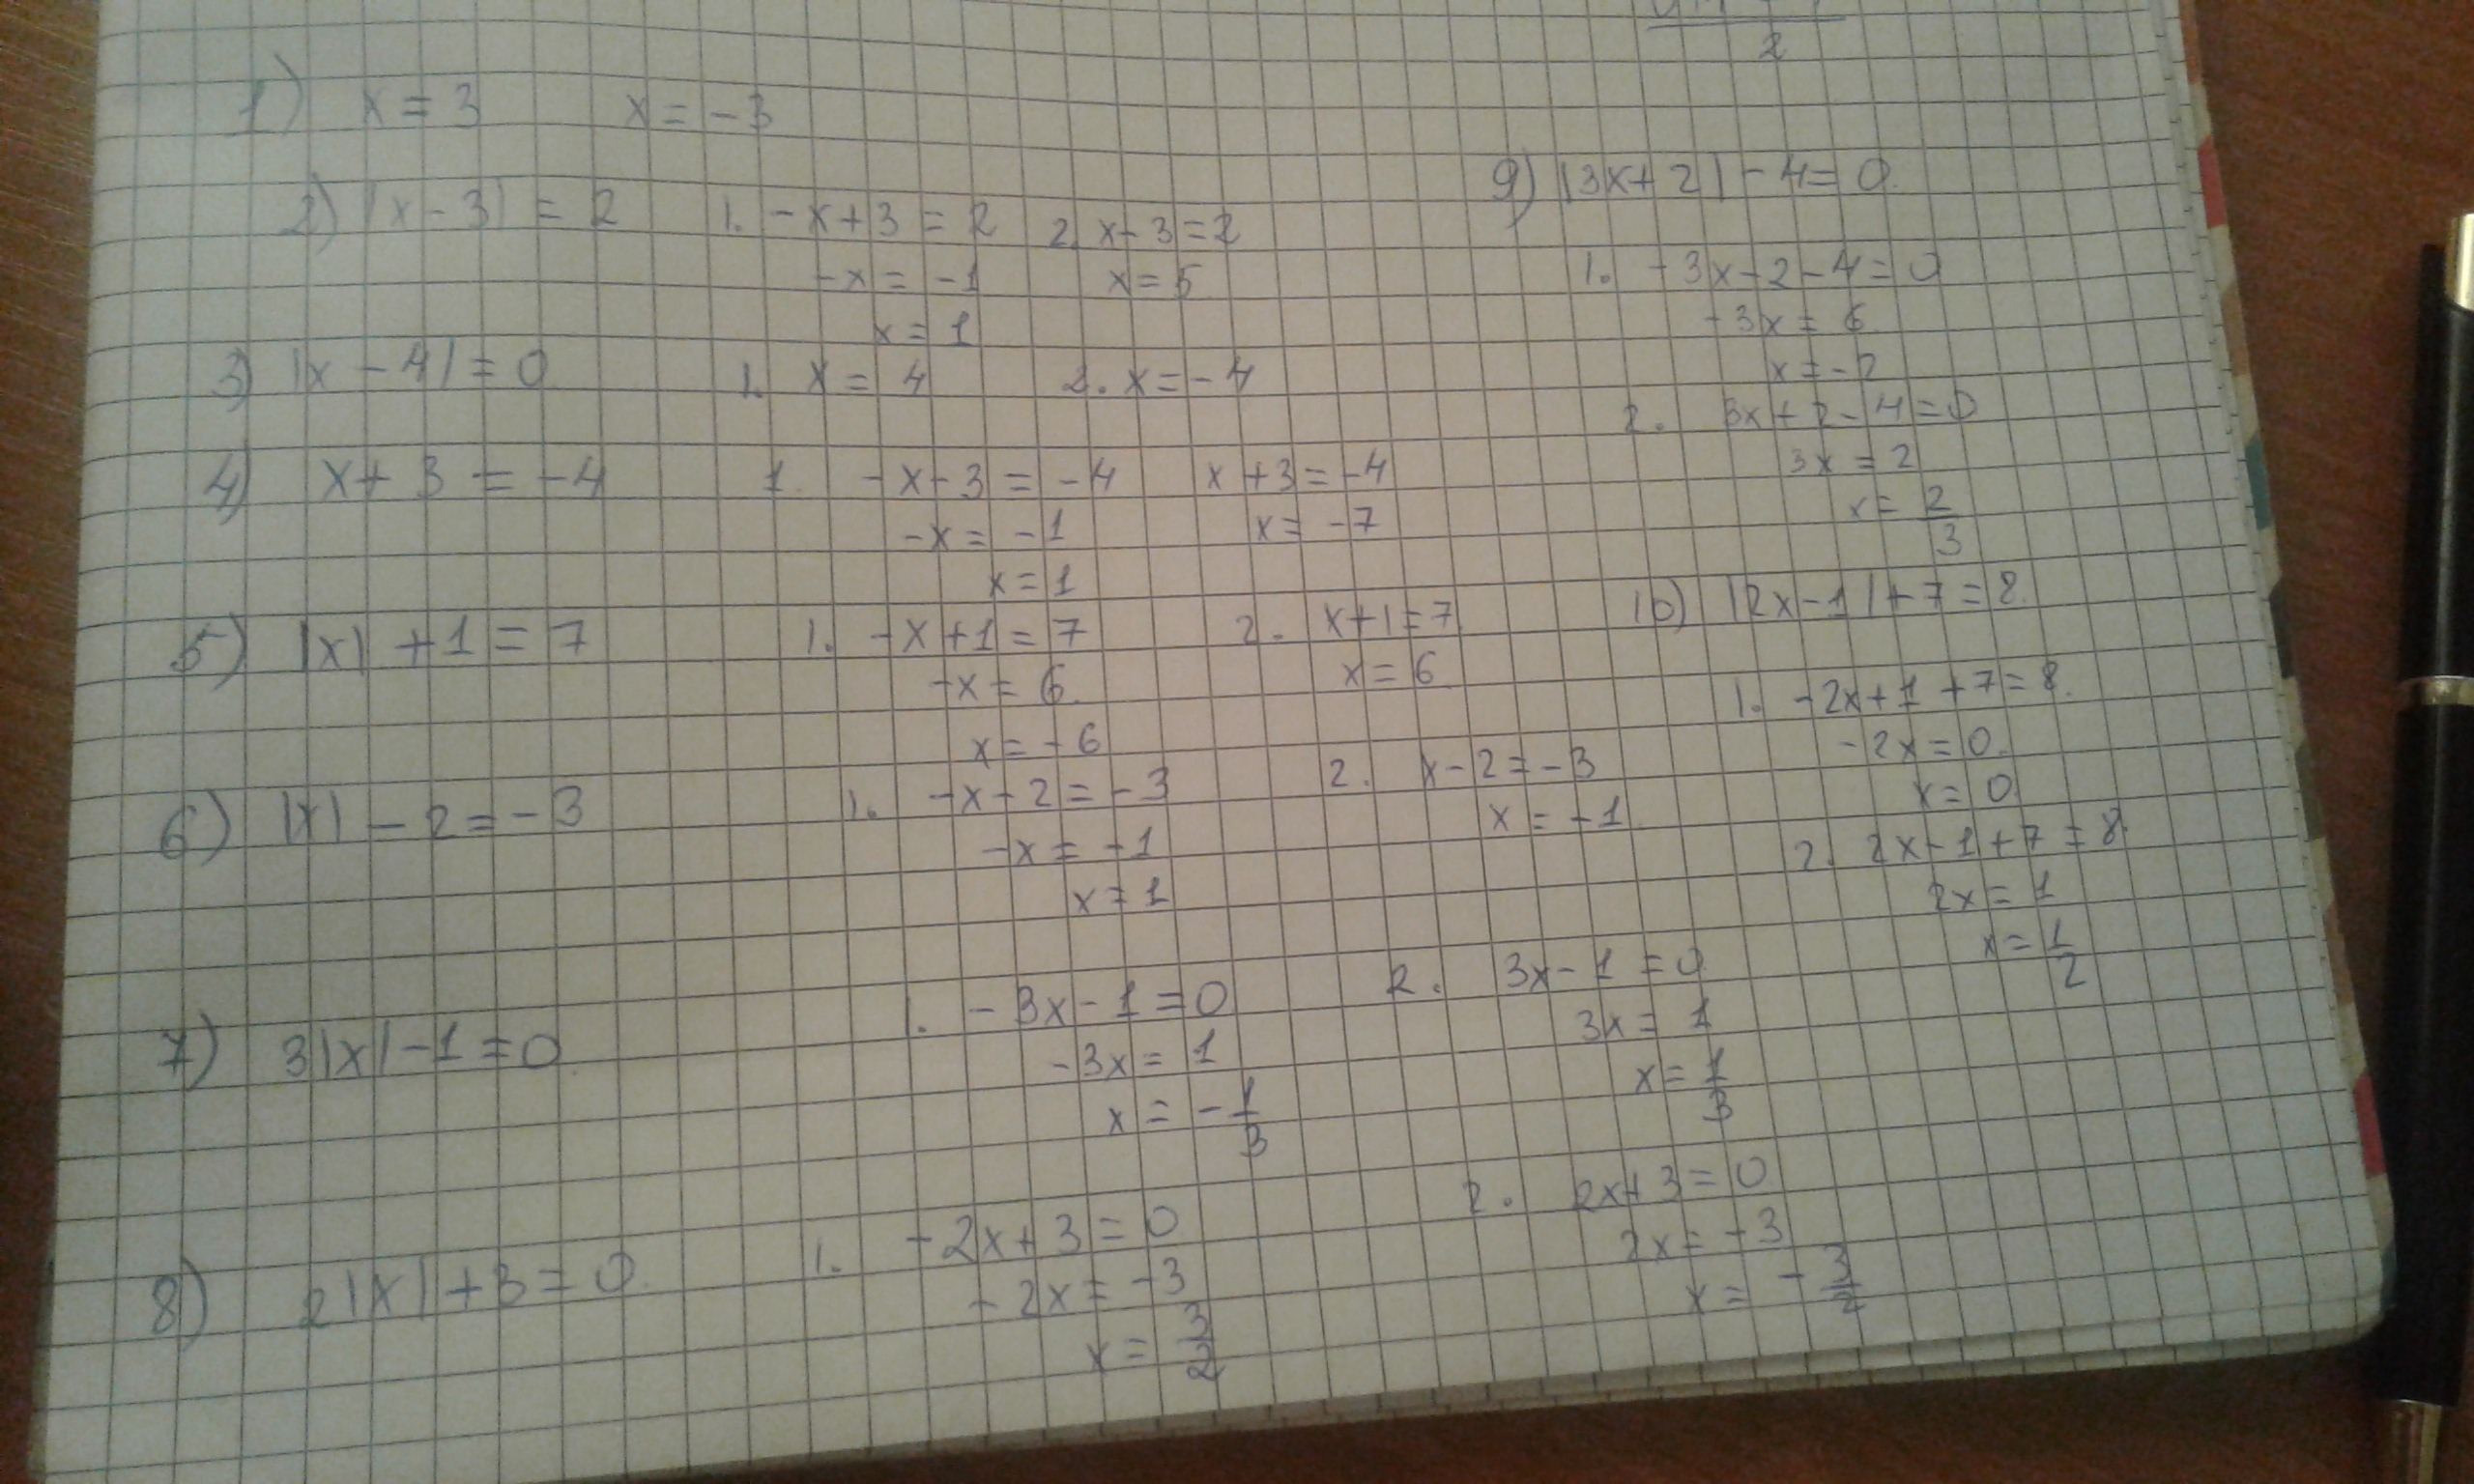 2
1) x = 3 x = -3
2) |x - 3| = 2 1. -x+3 = 2 2. x-3=2
-x = -1 x = 5
x = 1
3) |x - 4| = 0 1. x = 4 2. x = -4
4) x+3 = -4 1. -x-3 = -4 x+3 = -4
-x = -1 x = -7
x = 1
5) |x| +1 = 7 1. -x+1 = 7 2. x+1=7
-x = 6 x = 6
x = -6
6) |x| - 2 = -3 1. -x-2 = -3 2. x-2 = -3
-x = -1 x = -1
x = 1
7) 3|x| -1 = 0 1. -3x-1 = 0 2. 3x-1 = 0
-3x = 1 3x = 1
x = -1/3 x = 1/3
8) 2|x| +3 = 0 1. -2x+3 = 0 2. 2x+3 = 0
-2x = -3 2x = -3
x = 3/2 x = -3/2
9) |3x+2| -4 = 0
1. -3x-2-4 = 0
-3x = 6
x = -2
2. 3x+2-4 = 0
3x = 2
x = 2/3
10) |2x-1| +7 = 8
1. -2x+1+7 = 8
-2x = 0
x = 0
2. 2x-1+7 = 8
2x = 1
x = 1/2